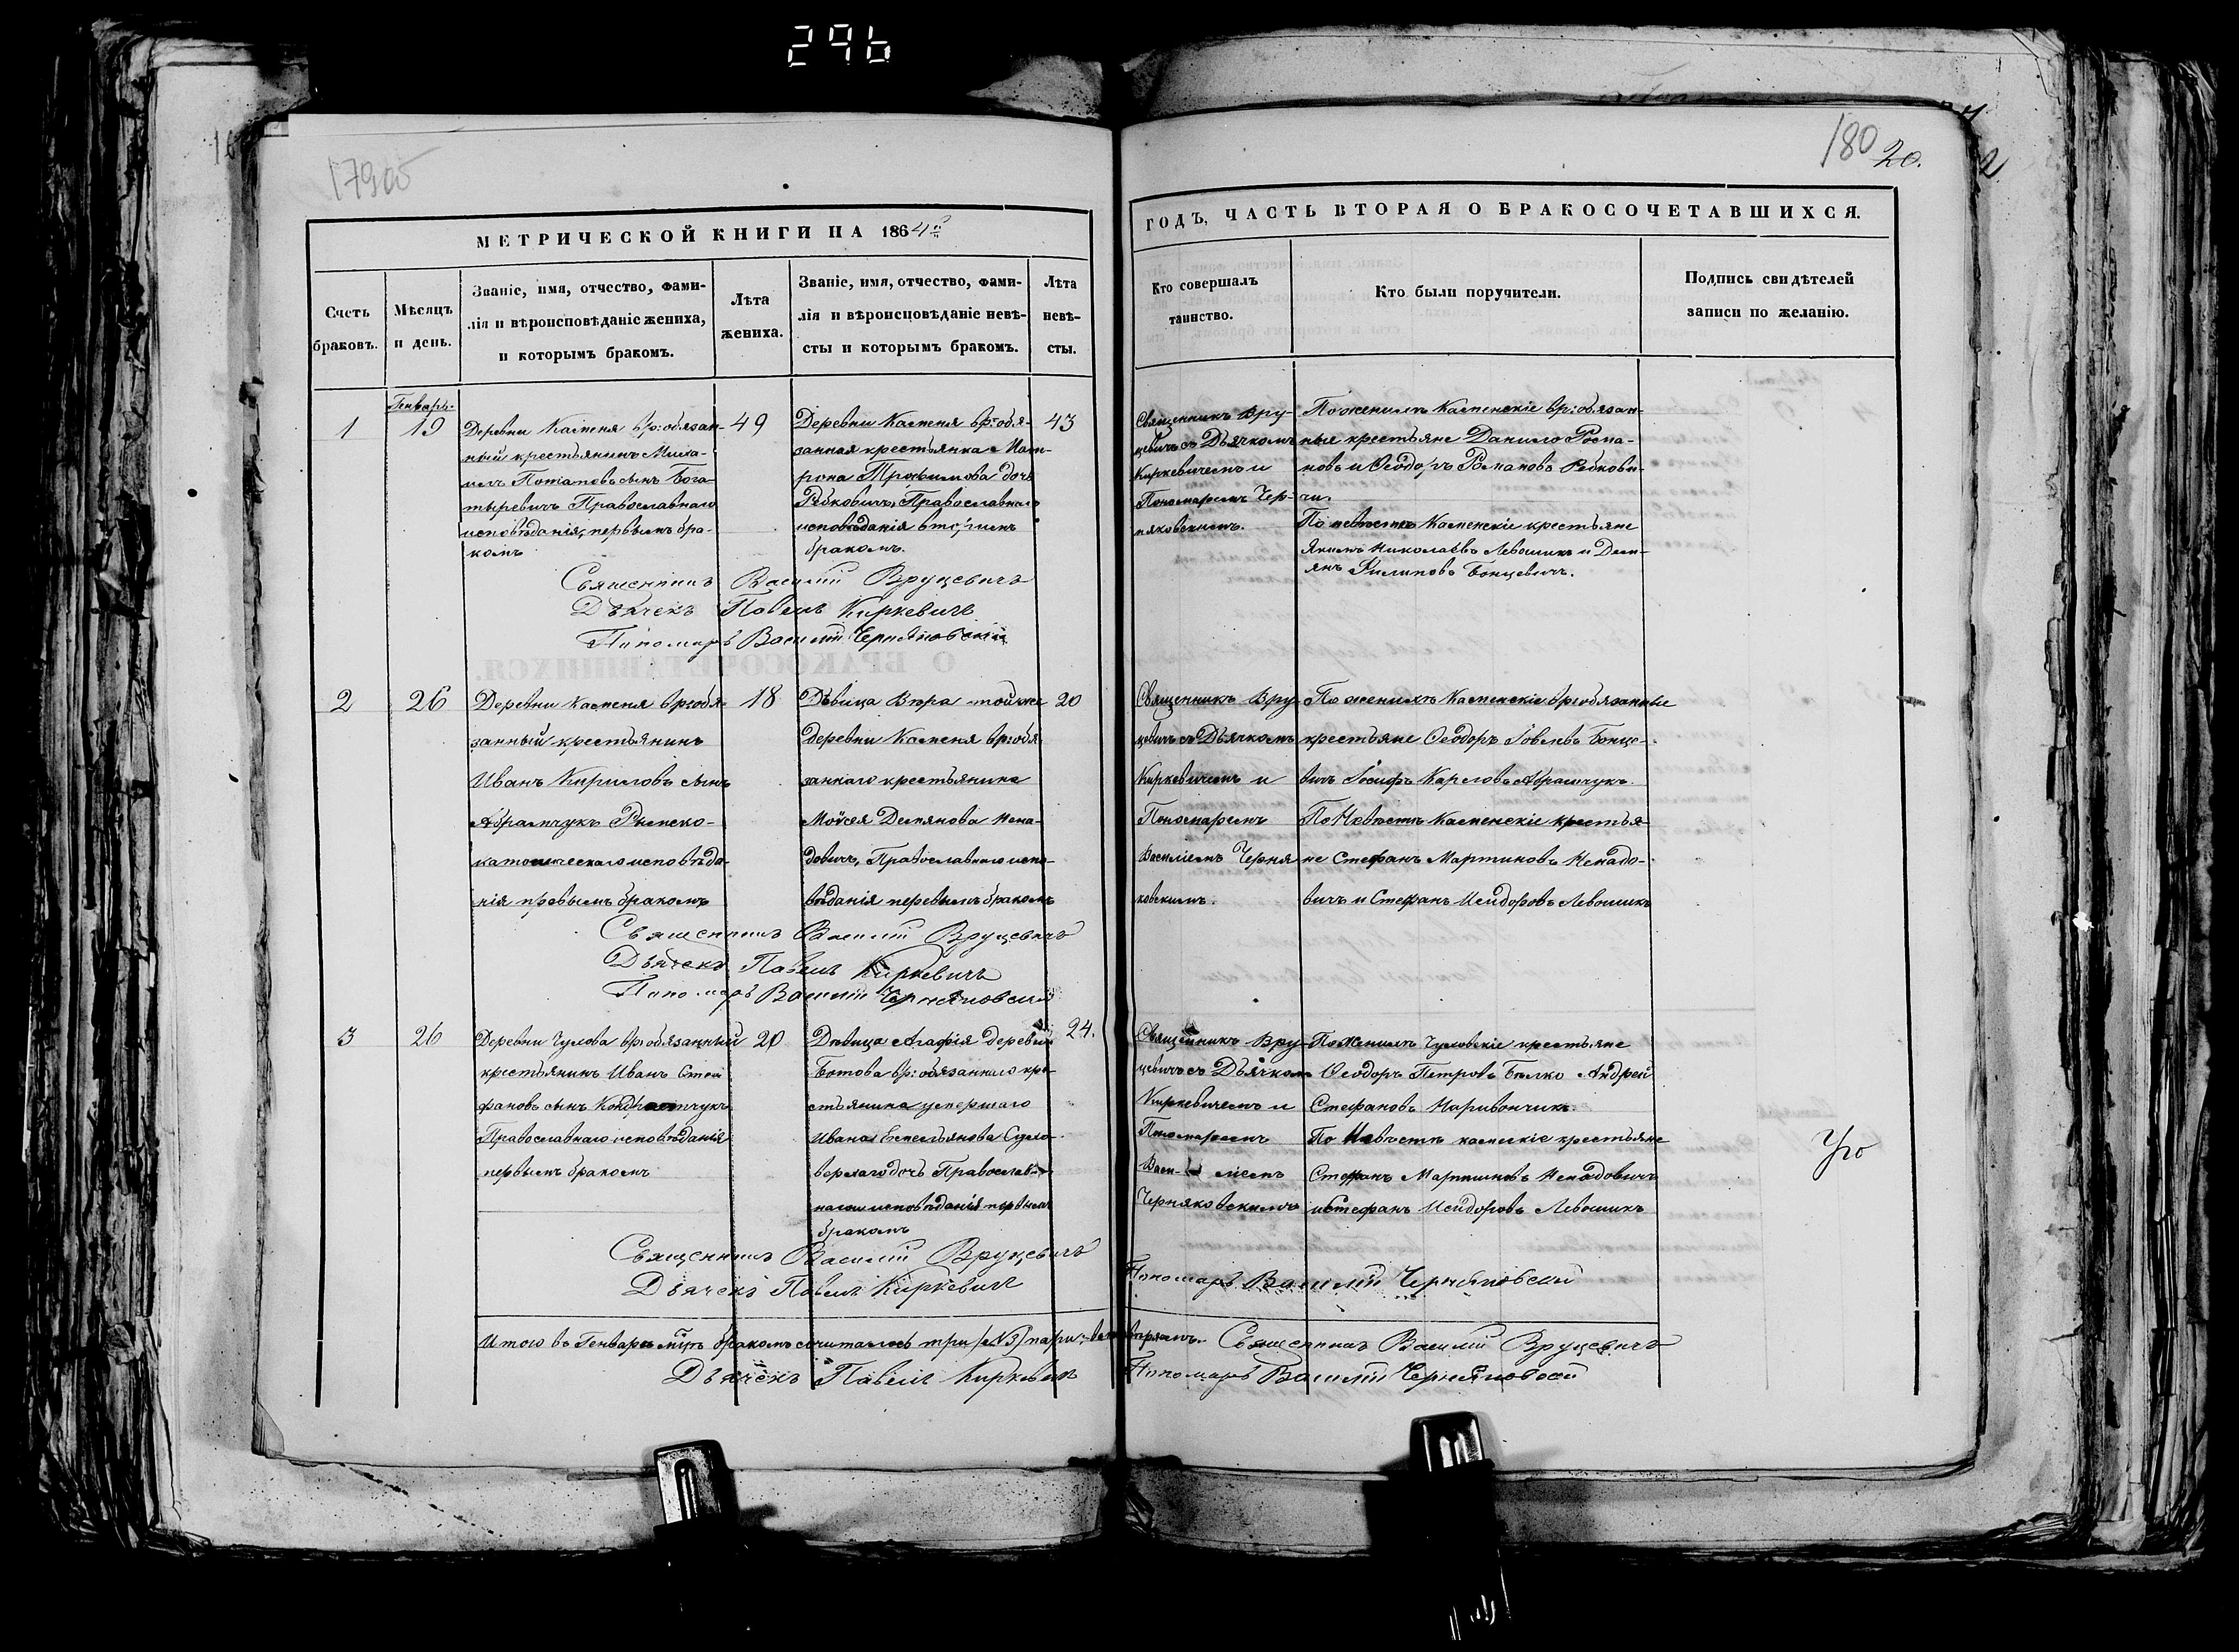 296
179об
180
20.
МЕТРИЧЕСКОЙ КНИГИ НА 1864й
ГОДЪ, ЧАСТЬ ВТОРАЯ О БРАКОСОЧЕТАВШИХСЯ.
Счетъ
браковъ.
Мѣсяцъ
и день.
Званіе, имя, отчество, фами-
лія и вѣроисповѣданіе жениха,
и которымъ бракомъ.
Лѣта
жениха.
Званіе, имя, отчество, фами-
лія и вѣроисповѣданіе невѣ-
сты и которымъ бракомъ.
Лѣта
невѣ-
сты.
Кто совершалъ
таинство.
Кто были поручители.
Подпись свидѣтелей
записи по желанію.
1
Генварь.
19
Деревни Каменя вр: обязан-
ный крестьянинъ Миха-
илъ Потаповъ сынъ Бога-
тыревичъ Православнаго
исповѣданія, первымъ бра-
комъ
49
Деревни Каменя вр: обя-
занная крестьянка Мат-
рона Трофимова дочь
Рубковичъ, Православнаго
исповѣданія вторымъ
бракомъ.
43
Священникъ Вру-
цевичъ съ Дьячкомъ
Киркевичемъ и
Пономаремъ Чер-
няковскимъ.
По женихѣ Каменскіе вр: обязан-
ные крестьяне Данило Рома-
новъ и Ѳеодоръ Романовъ
По невѣстѣ Каменскіе крестьяне
Якимъ Николаевъ Левошикъ и Деми-
янъ Филиповъ Бонцевичъ.
Священникъ Василій Вруцевичъ
Дьячекъ Павелъ Киркевичъ
Пономаръ Василій Черняковскій
2
26
Деревни Каменя вр: обя-
занный крестьянинъ
Иванъ Кириловъ сынъ
Абрамчукъ Римско-
католическаго исповѣда-
нія первымъ бракомъ
18
Дѣвица Вѣра той же
деревни Каменя вр: обя-
заннаго крестьянина
Мойсея Демянова Нена-
довичъ, Православнаго испо-
вѣданія первымъ бракомъ
20
Священникъ Вру-
цевичъ съ Дьячкомъ
Киркевичемъ и
Пономаремъ
Василіемъ Черня-
ковскимъ.
По женихѣ Каменскіе вр: обязанные
крестьяне Ѳеодоръ Іовлевъ Бонце-
вичъ Іосифъ Карловъ Абрамчукъ.
По Невѣстѣ Каменскіе крестья-
не Стефанъ Мартиновъ Ненадо-
вичъ и Стефанъ Исидоровъ Левошикъ
Священникъ Василій Вруцевичъ
Дьячекъ Павелъ Киркевичъ
Пономаръ Василій Черняковскій
3
26
Деревни Чулова вр: обязанный
крестьянинъ Иванъ Сте-
фановъ сынъ
Православнаго исповѣданія
первымъ бракомъ
20
Дѣвица Агафія деревни
Ботова вр: обязаннаго кре-
стьянина умершаго
Ивана Емельянова
дочь Православ-
наго исповѣданія первымъ
бракомъ
24.
Священникъ Вру-
цевичъ съ Дьячкомъ
Киркевичемъ и
Пономаремъ
Васи- ліемъ
Черняковскимъ
По Женихѣ Чуловскіе крестьяне
Ѳеодоръ Петровъ Белко Андрей
Стефановъ Харивончикъ.
По Невѣстѣ каменскіе крестьяне
Стефанъ Мартиновъ Ненадовичъ
и Стефанъ Исидоровъ Левошикъ
Священникъ Василій Вруцевичъ
Дьячекъ Павелъ Киркевичъ
Пономаръ Василій Черняковскій
Итого въ Генварѣ м-цѣ бракомъ сочиталось три (№3) пары,
Священникъ Василій Вруцевичъ
Дьячекъ Павелъ Киркевичъ
Пономаръ Василій Черняковскій